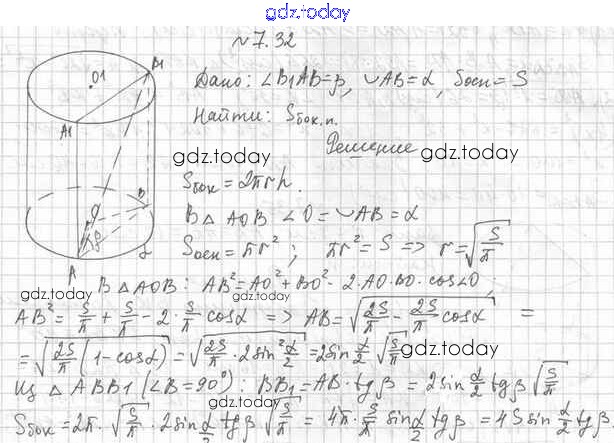 gdz.today
№7.32
Дано: ∠B1AB=β, ∪AB=α, Sосн=S
Найти: Sбок.п.
Решение
gdz.today
gdz.today
Sбок=2πrh.
В △AOB ∠O=∪AB=α
gdz.today
Sосн=πr²; πr²=S => r=√(S/π)
В △AOB: AB²=AO²+BO²-2·AO·BO·cos∠O;
gdz.today
gdz.today
AB²=S/π+S/π-2·S/π cosα => AB=√(2S/π-2S/π cosα) =
=√(2S/π(1-cosα))=√(2S/π·2sin²α/2)=2sin α/2 √(S/π)
gdz.today
Из △ABB1 (∠B=90°): BB1=AB·tgβ=2sin α/2 tgβ√(S/π)
Sбок=2π·√(S/π)·2sin α/2 tgβ√(S/π)=4π·S/π sin α/2 tgβ=4S sin α/2 tgβ
O1
B1
A1
O
B
β
α
A